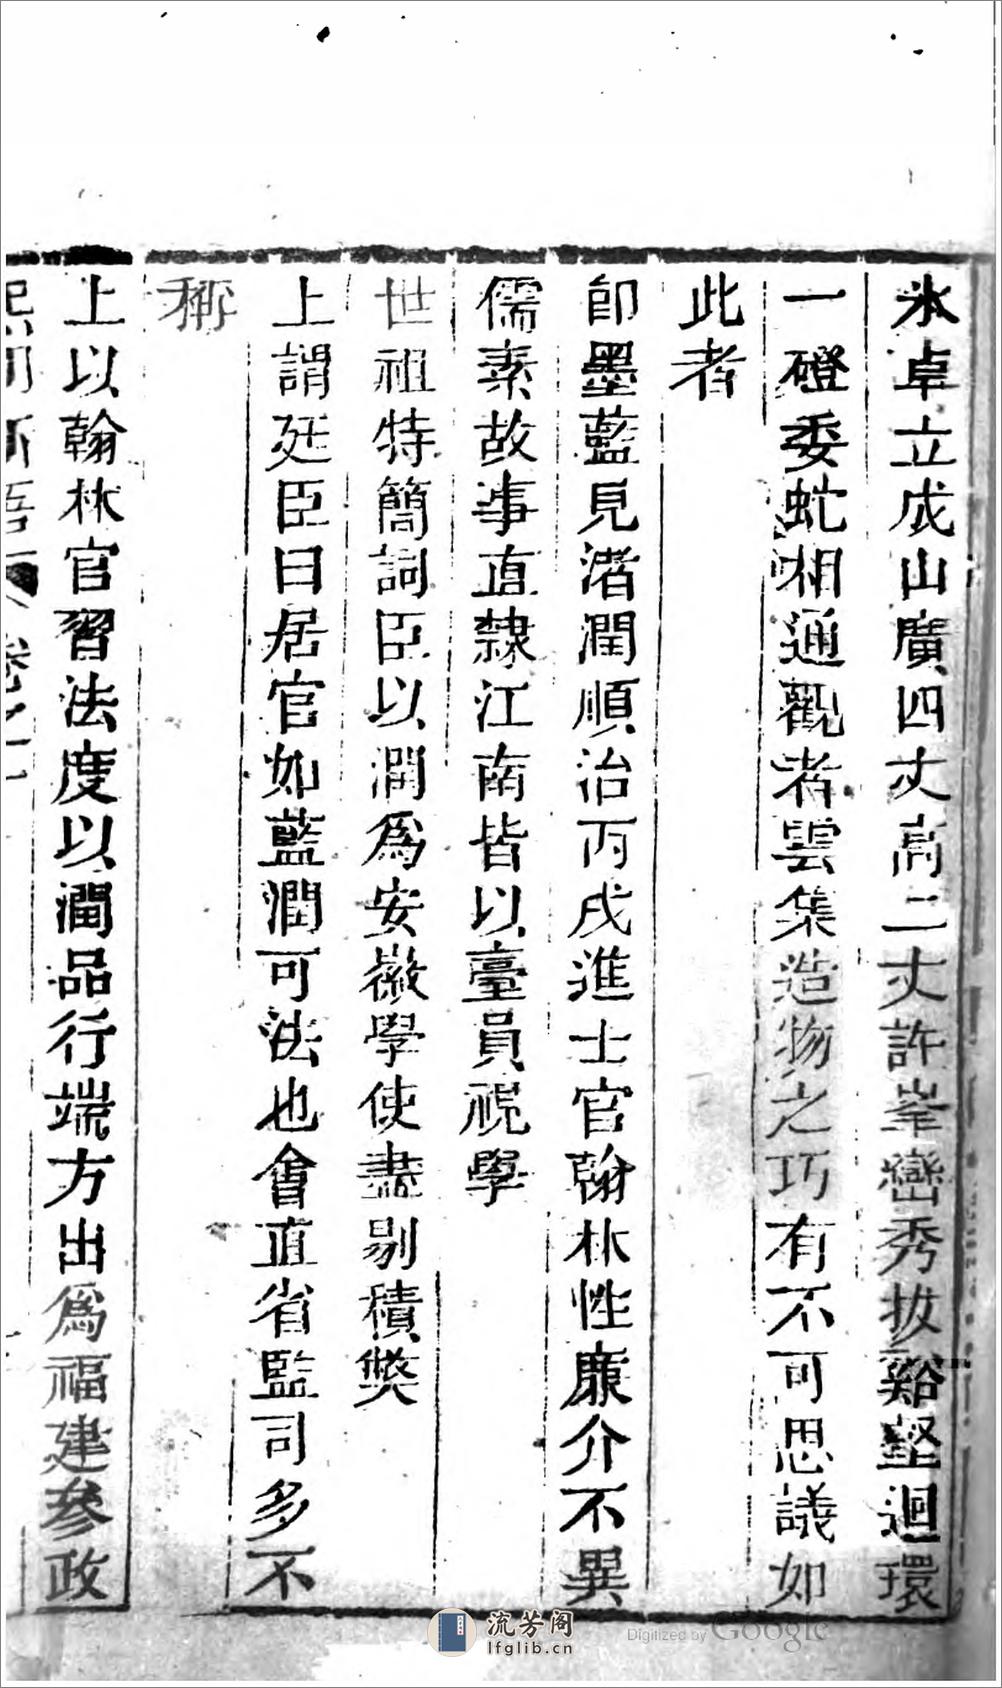 氷卓立成山廣四丈高二丈許峯巒秀拔谿壑迴環
一磴委虬相通觀者雲集造物之巧有不可思議如
此者
卽墨藍見渚潤順治丙戌進士官翰林性廉介不異
儒素故事直隸江南皆以臺員視學
世祖特簡詞臣以潤爲安徽學使盡剔積獘
上謂廷臣曰居官如藍潤可法也會直省監司多不
稱
上以翰林官習法度以潤品行端方出爲福建參政
流芳阁
lfglib.cn
Digitized by Google